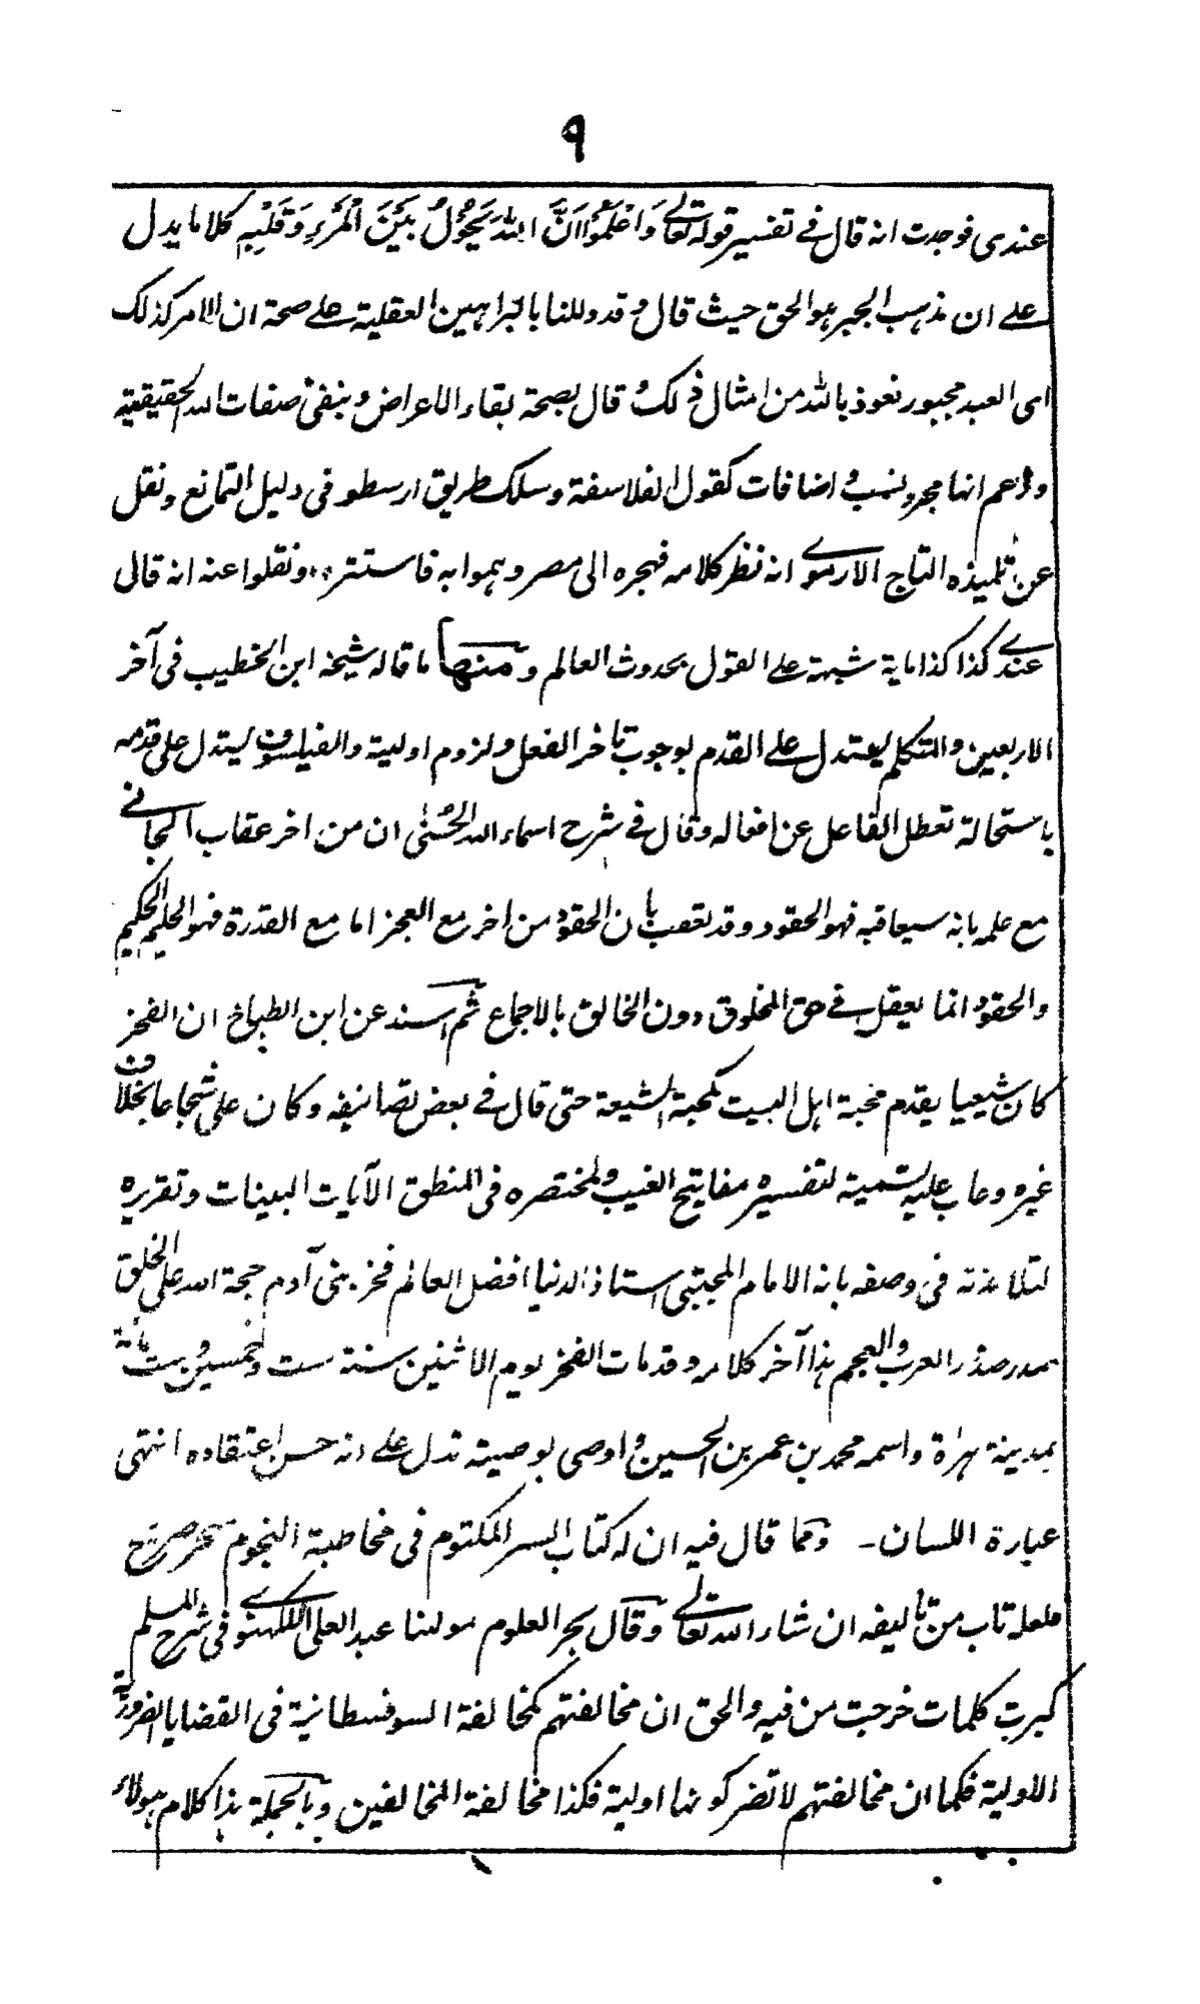 ٩
عندى فوجدت انه قال فى تفسير قوله تعالى وَاعْلَمُوْا اَنَّ اللهَ يَحُوْلُ بَيْنَ الْمَرْءِ وَقَلْبِهٖ كلاما يدل
على ان مذهب الجبر هو الحق حيث قال وقد دللنا بالبراهين العقلية على صحة ان الامر كذلك
اى العبد مجبور نعوذ بالله من امثال ذلك وقال بصحة بقاء الاعراض وبنفى صفات الله الحقيقية
وزعم انها مجرد نسب واضافات كقول الفلاسفة وسلك طريق ارسطو فى دليل التمانع ونقل
عن تلميذه التاج الارموى انه نظر كلامه فهجره الى مصر وهموا به فاستتر ونقلوا عنه انه قال
عندى كذا كذا ماية شبهة على القول بحدوث العالم ومنها ما قاله شيخه ابن الخطيب فى آخر
الاربعين والمتكلم يستدل على القدم بوجوب تاخر الفعل ولزوم اولية والفيلسوف يستدل على قدمه
باستحالة تعطل الفاعل عن افعاله وقال فى شرح اسماء الله الحسنى ان من اخر عقاب الجانى
مع علمه بانه سيعاقبه فهو الحقود وقد تعقب بان الحقود من اخر مع العجز اما مع القدرة فهو الحليم الحكيم
والحقود انما يعقل فى حق المخلوق دون الخالق بالاجماع ثم اسند عن ابن الطباخ ان الفخر
كان شيعيا يقدم محبة اهل البيت كمحبة الشيعة حتى قال فى بعض تصانيفه وكان على شجاعا بخلاف
غيره وعاب عليه تسمية لتفسيره مفاتيح الغيب ولمختصره فى المنطق الآيات البينات وتقريره
لتلامذته فى وصفه بانه الامام المجتبى استاذ الدنيا افضل العالم فخر بنى آدم حجة الله على الخلق
صدر صدر العرب والعجم هذا آخر كلامه وقد مات الفخر يوم الاثنين سنة ست وخمسين وست مائة
بمدينة هراة واسمه محمد بن عمر بن الحسين واوصى بوصية تدل على انه حسن اعتقاده انتهى
عبارة اللسان - ومما قال فيه ان له كتاب السر المكتوم فى مخاطبة النجوم سحر صريح
فلعله تاب من تأليفه ان شاء الله تعالى وقال بحر العلوم مولنا عبد العلى اللكهنوى فى شرح المسلم
كبرت كلمات خرجت من فيه والحق ان مخالفتهم كمخالفة السوفسطانية فى القضايا الضرورية
الاولية فكما ان مخالفتهم لا تضر كونها اولية فكذا مخالفة المخالفين وبالجملة هذا كلام هولاء